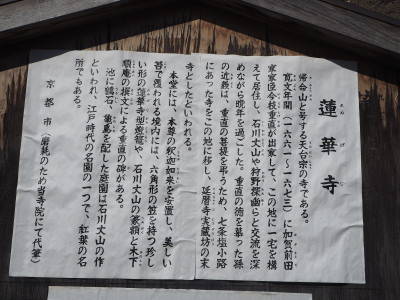 蓮華寺
れんげじ
帰命山と号する天台宗の寺である。
寛文年間(一六六一～一六七三)に加賀前田
家家臣今枝重直が出家して、この地に一宅を構
えて居住し、石川丈山や狩野探幽らと交流を深
めながら晩年を過ごした。重直の徳を慕った孫
の近義は、重直の菩提を弔うため、七条塩小路
にあった寺をこの地に移し、延暦寺実蔵坊の末
寺としたといわれる。
本堂には、本尊の釈迦如来を安置し、美しい
苔で覆われる境内には、六角形の笠を持つ珍し
い形の蓮華寺型燈籠や、石川丈山の篆額と木下
順庵の撰文による重直の碑がある。
池に鶴石、亀島を配した庭園は石川丈山の作
といわれ、江戸時代の名園の一つで、紅葉の名
所でもある。
京都市(磨耗のため当寺院にて代筆)